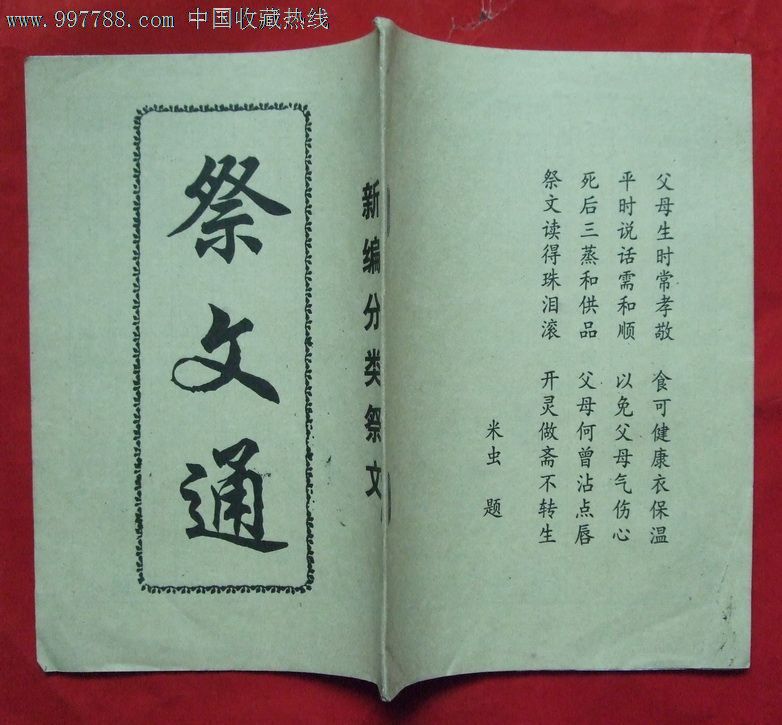 www.997788.com 中国收藏热线
祭文通
新编分类祭文
父母生时常孝敬 食可健康衣保温
平时说话需和顺 以免父母气伤心
死后三蒸和供品 父母何曾沾点唇
祭文读得珠泪滚 开灵做斋不转生
米虫 题